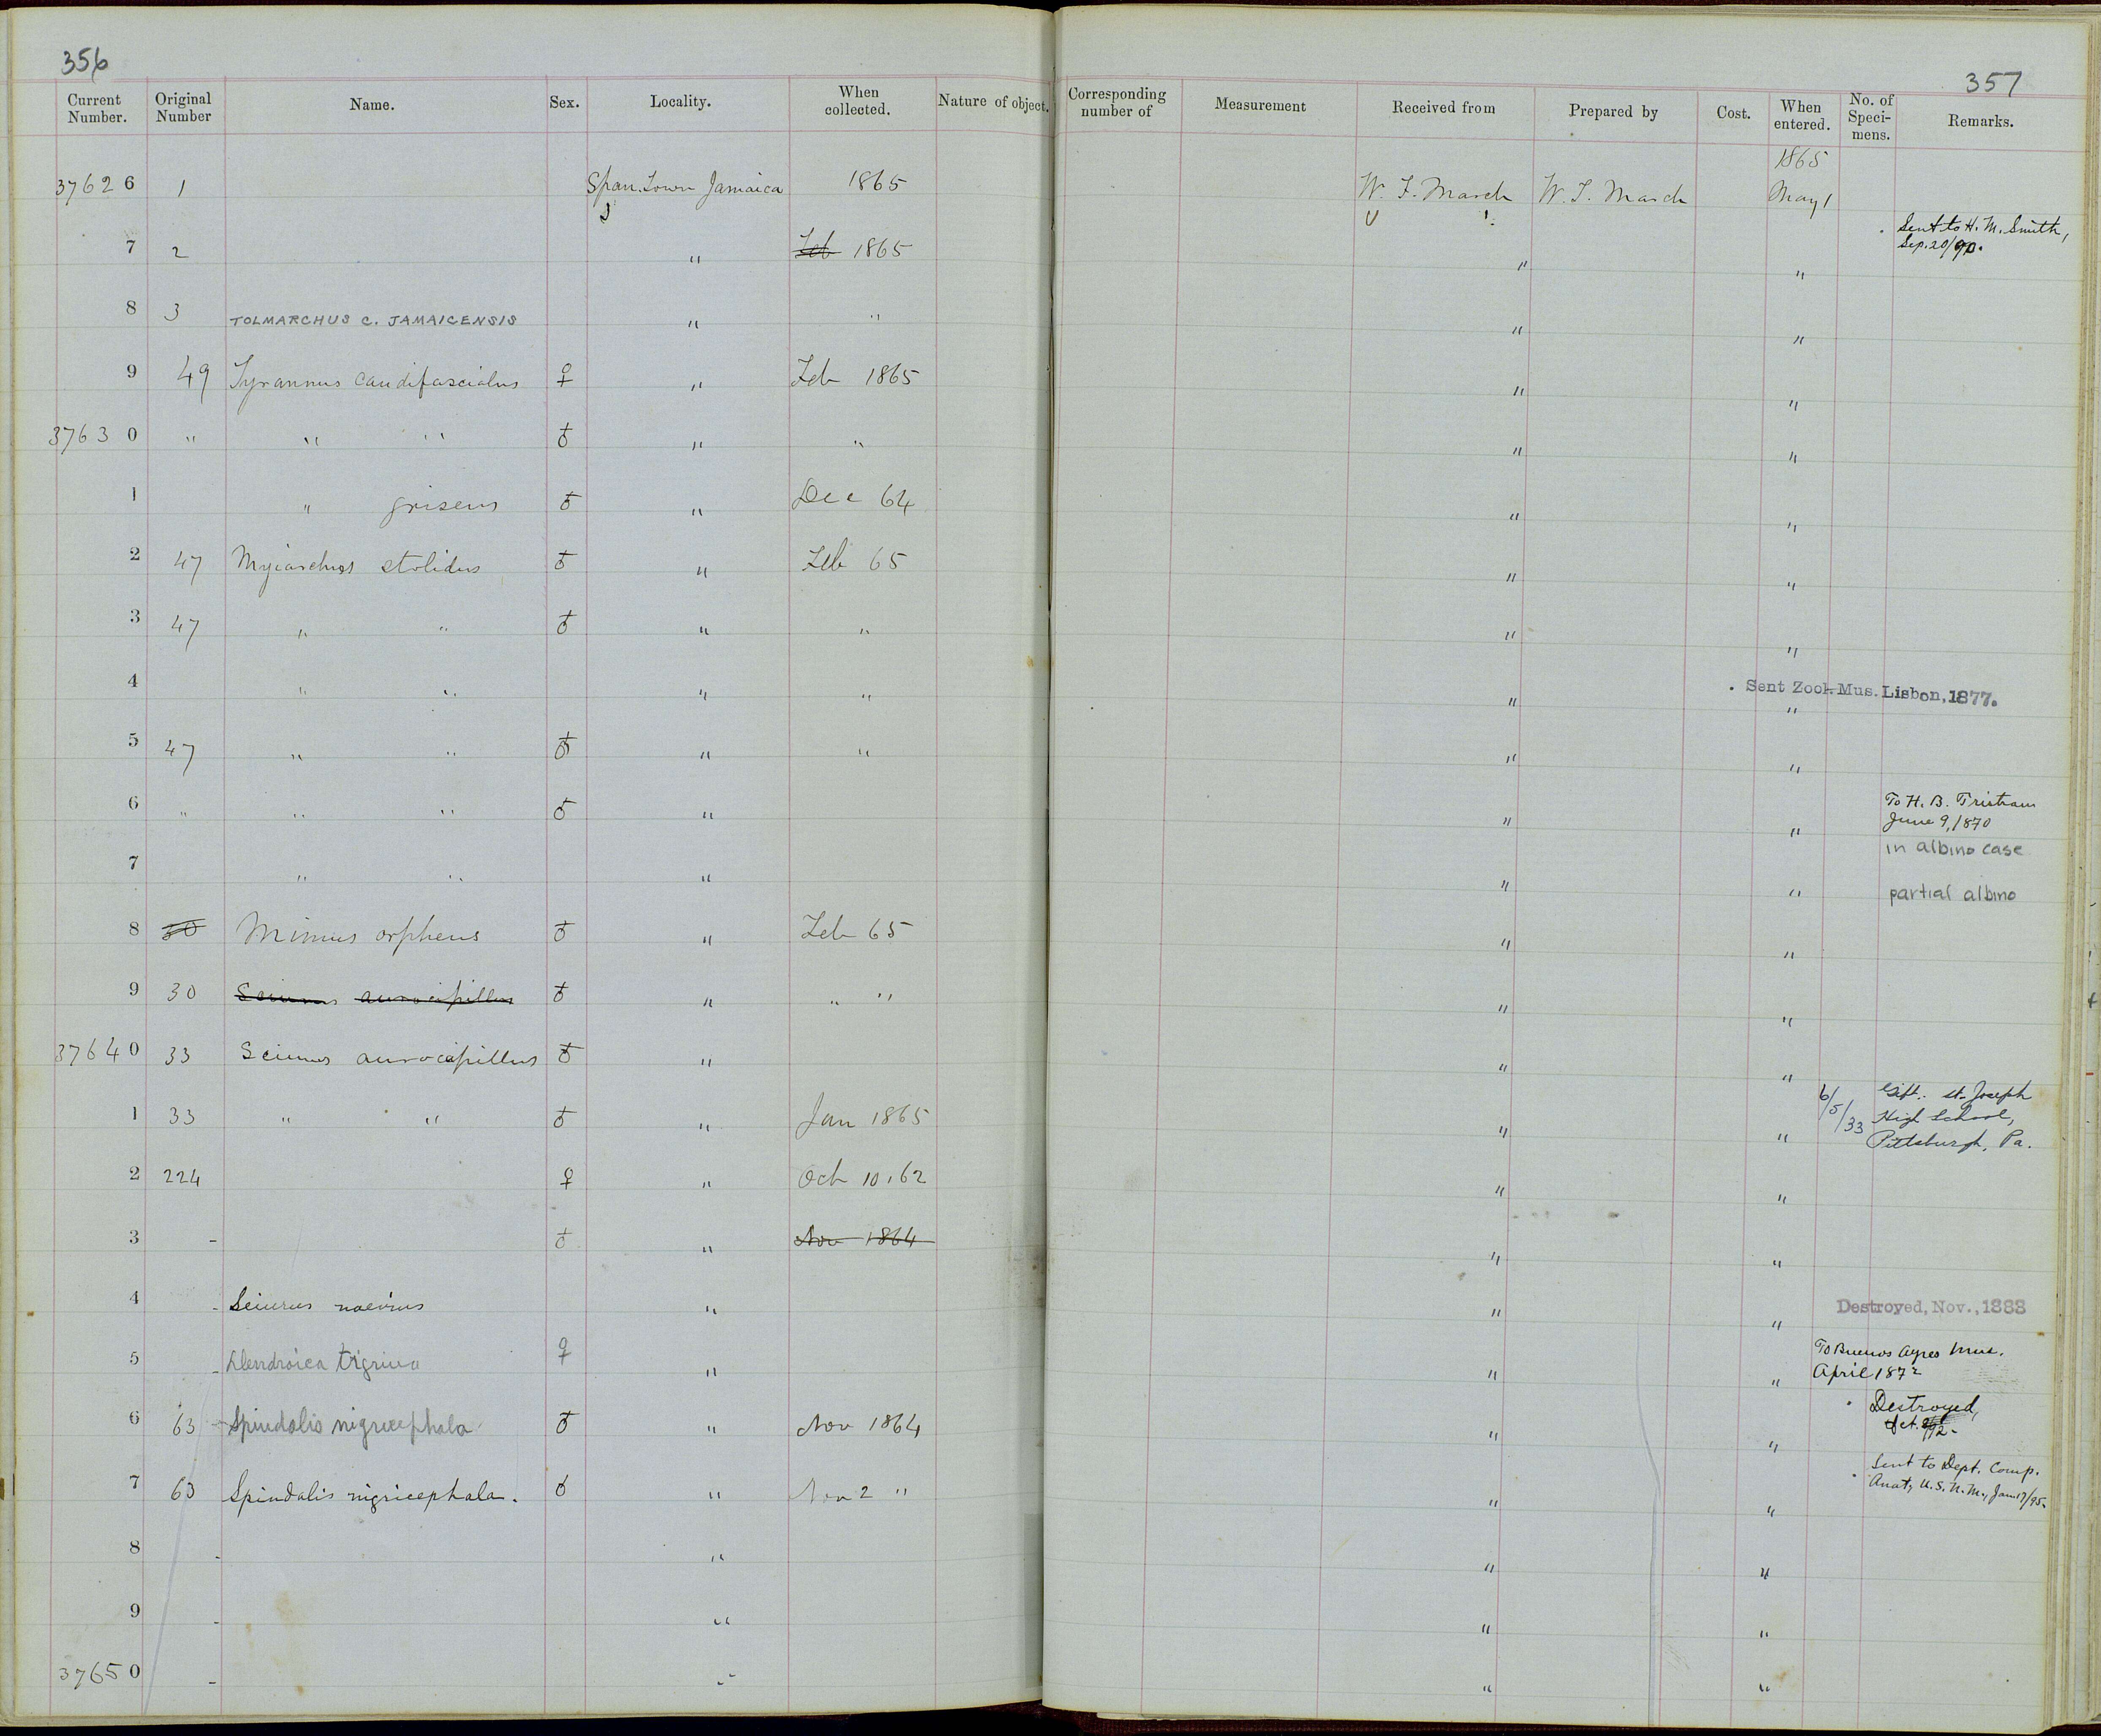 356
357
Current Number. Original Number Name. Sex. Locality. When collected. Nature of object. Corresponding number of Measurement Received from Prepared by Cost. When entered. No. of Speci-mens. Remarks.
1865
37626 1 Span. Town Jamaica 1865 W. T. March W. T. March May 1
7 2 " Feb 1865 " " Sent to H. M. Smith,
Sep. 20/90.
8 3 TOLMARCHUS C. JAMAICENSIS " " " "
9 49 Tyrannus caudifasciatus ♀ " Feb 1865 " "
37630 " " " ♂ " " " "
1 " griseus ♂ " Dec 64 " "
2 47 Myiarchus stolidus ♂ " Feb 65 " "
3 47 " " ♂ " " " "
4 " " " " " " Sent Zool. Mus. Lisbon, 1877.
5 47 " " ♂ " " " "
6 " " " ♂ " " " To H. B. Tristram
June 9, 1870
in albino case
7 " " " " " partial albino
8 30 Mimus orpheus ♂ " Feb 65 " "
9 30 Seiurus aurocapillus ♂ " " " " "
37640 33 Seiurus aurocapillus ♂ " " "
1 33 " " ♂ " Jan 1865 " " 6/5/33 Gift: St. Joseph
High School,
Pittsburgh, Pa.
2 224 ♀ " Oct 10, 62 " "
3 - ♂ " Nov 1864 " "
4 - Seiurus naevius " " " Destroyed, Nov., 1888
5 - Dendroica tigrina ♀ " " " To Buenos Ayres Mus.
April 1872
6 63 - Spindalis nigricephala ♂ " Nov 1864 " " Destroyed,
Oct.
7 63 Spindalis nigricephala. ♂ " Nov 2 " " " Sent to Dept. Comp.
Anat, U.S.N.M., Jan 17/95.
8 - " " "
9 - " " "
37650 - " " "